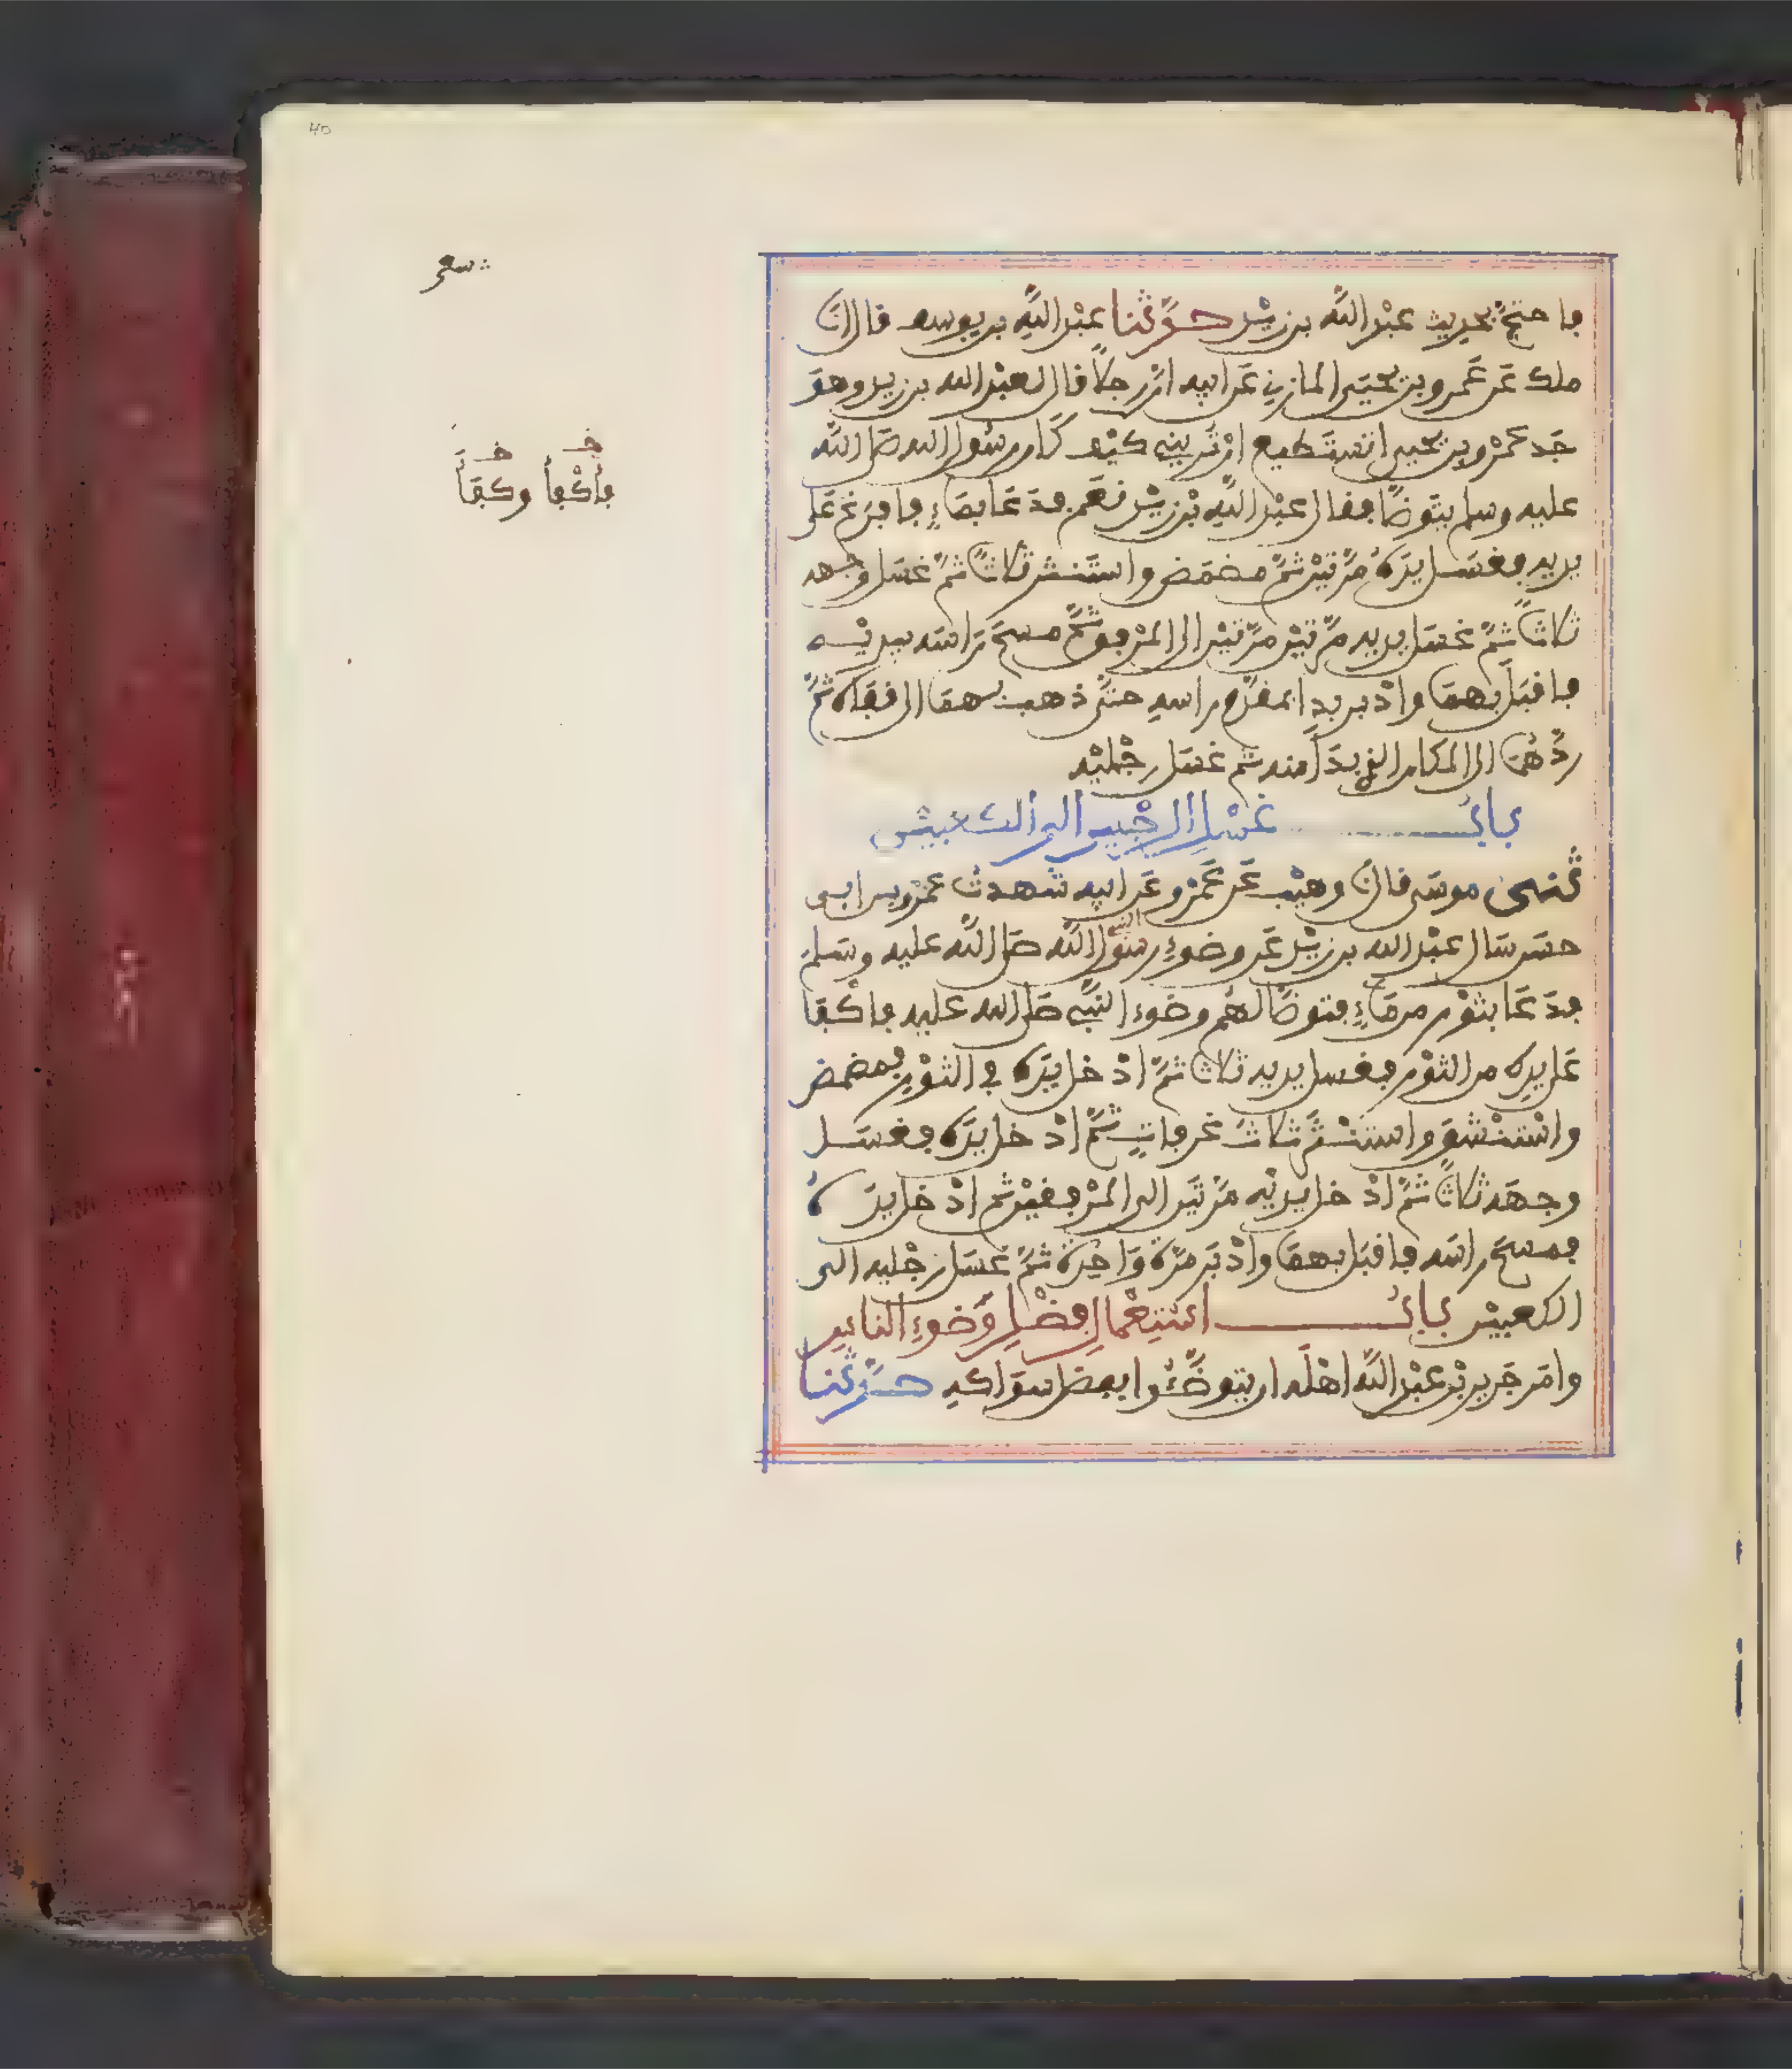 40
فاحتج بحديث عبد الله بن زيد حدثنا عبد الله بن يوسف قال انا
ملك عن عمرو بن يحيى المازني عن ابيه ان رجلا قال لعبد الله بن زيد وهو
جد عمرو بن يحيى اتستطيع ان تريني كيف كان رسول الله صلى الله
عليه وسلم يتوضأ فقال عبد الله بن زيد نعم فدعا بماء فافرغ على
يديه فغسل يده مرتين ثم مضمض واستنثر ثلاثا ثم غسل وجهه
ثلاثا ثم غسل يديه مرتين مرتين الى المرفق ثم مسح رأسه بيديه
فاقبل بهما وادبر بدا بمقدم راسه حتى ذهب بهما الى قفاه ثم
ردهما الى المكان الذي بدأ منه ثم غسل رجليه
باب غسل الرجلين الى الكعبين
ثنى موسى قال نا وهيب عن عمرو عن ابيه شهدت عمرو بن ابي
حسن سال عبد الله بن زيد عن وضوء رسول الله صلى الله عليه وسلم
النبي
فدعا بتور من ماء فتوضأ لهم وضوء النبي صلى الله عليه فاكفا
على يده من التور فغسل يديه ثلاثا ثم ادخل يده في التور فمضمض
واستنشق واستنثر ثلاث غرفات ثم ادخل يده فغسل
وجهه ثلاثا ثم ادخل يديه مرتين الى المرفقين ثم ادخل يده
فمسح راسه فاقبل بهما وادبر مرة واحدة ثم غسل رجليه الى
الكعبين باب استعمال فضل وضوء الناس
وامر جرير بن عبد الله اهله ان يتوضئوا بفضل سواكه حدثنا
فأكفأ وكفأ